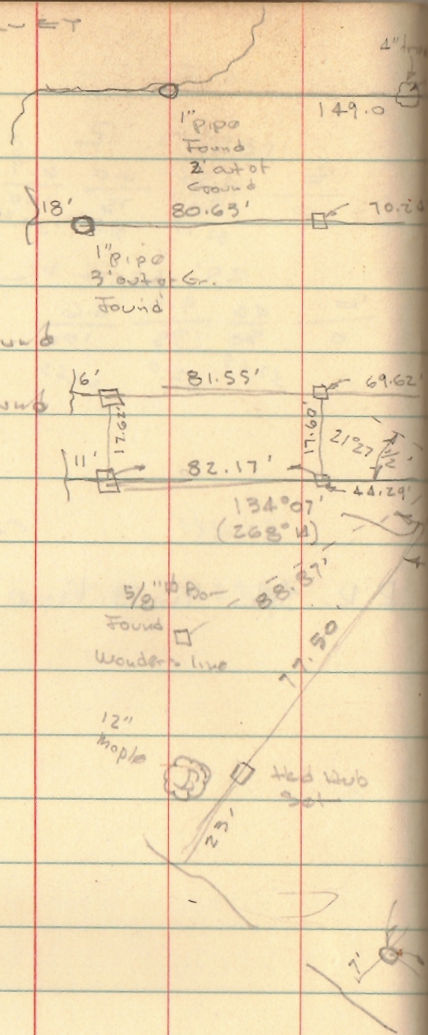 4"
149.0
1"
pipe
Found
2' out of
Ground
18'
80.63'
1" pipe
3' out of Gr.
Found
6'
81.55'
69.62'
17.62'
17.60'
21°27
1/2'
11'
82.17'
44.29'
134°07'
(268°14')
88.87'
5/8" Φ Bar
Found
Wonders line
77.50'
12"
Maple
Hed Hub
Set
23'
7'